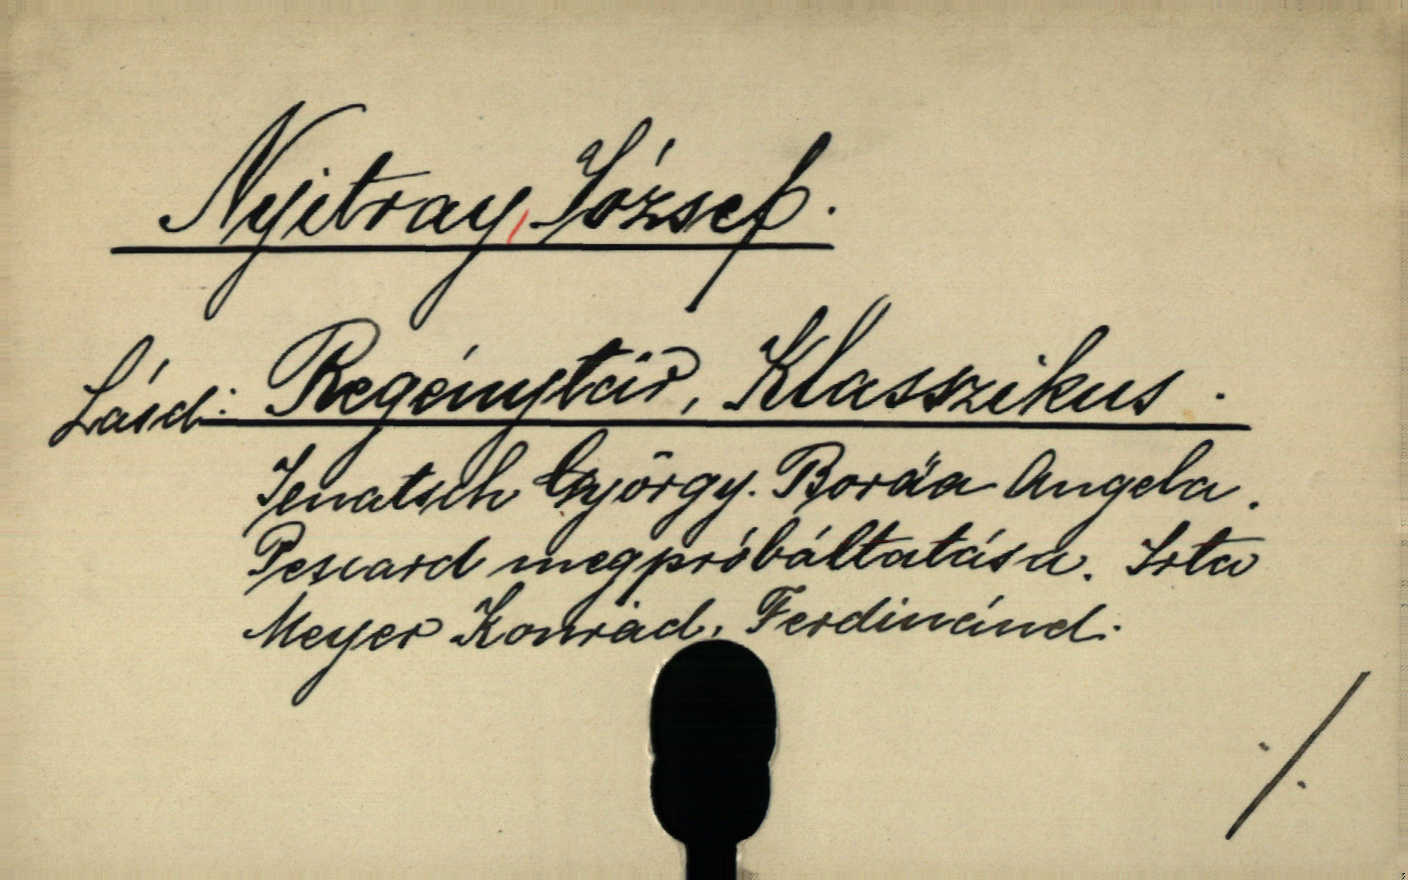 Nyitray, József.
Lásd: Regénytár, Klasszikus.
Jenatsch György. Boráa Angela.
Pescard megpróbáltatása. Irta
Meyer Konrád, Ferdinánd.